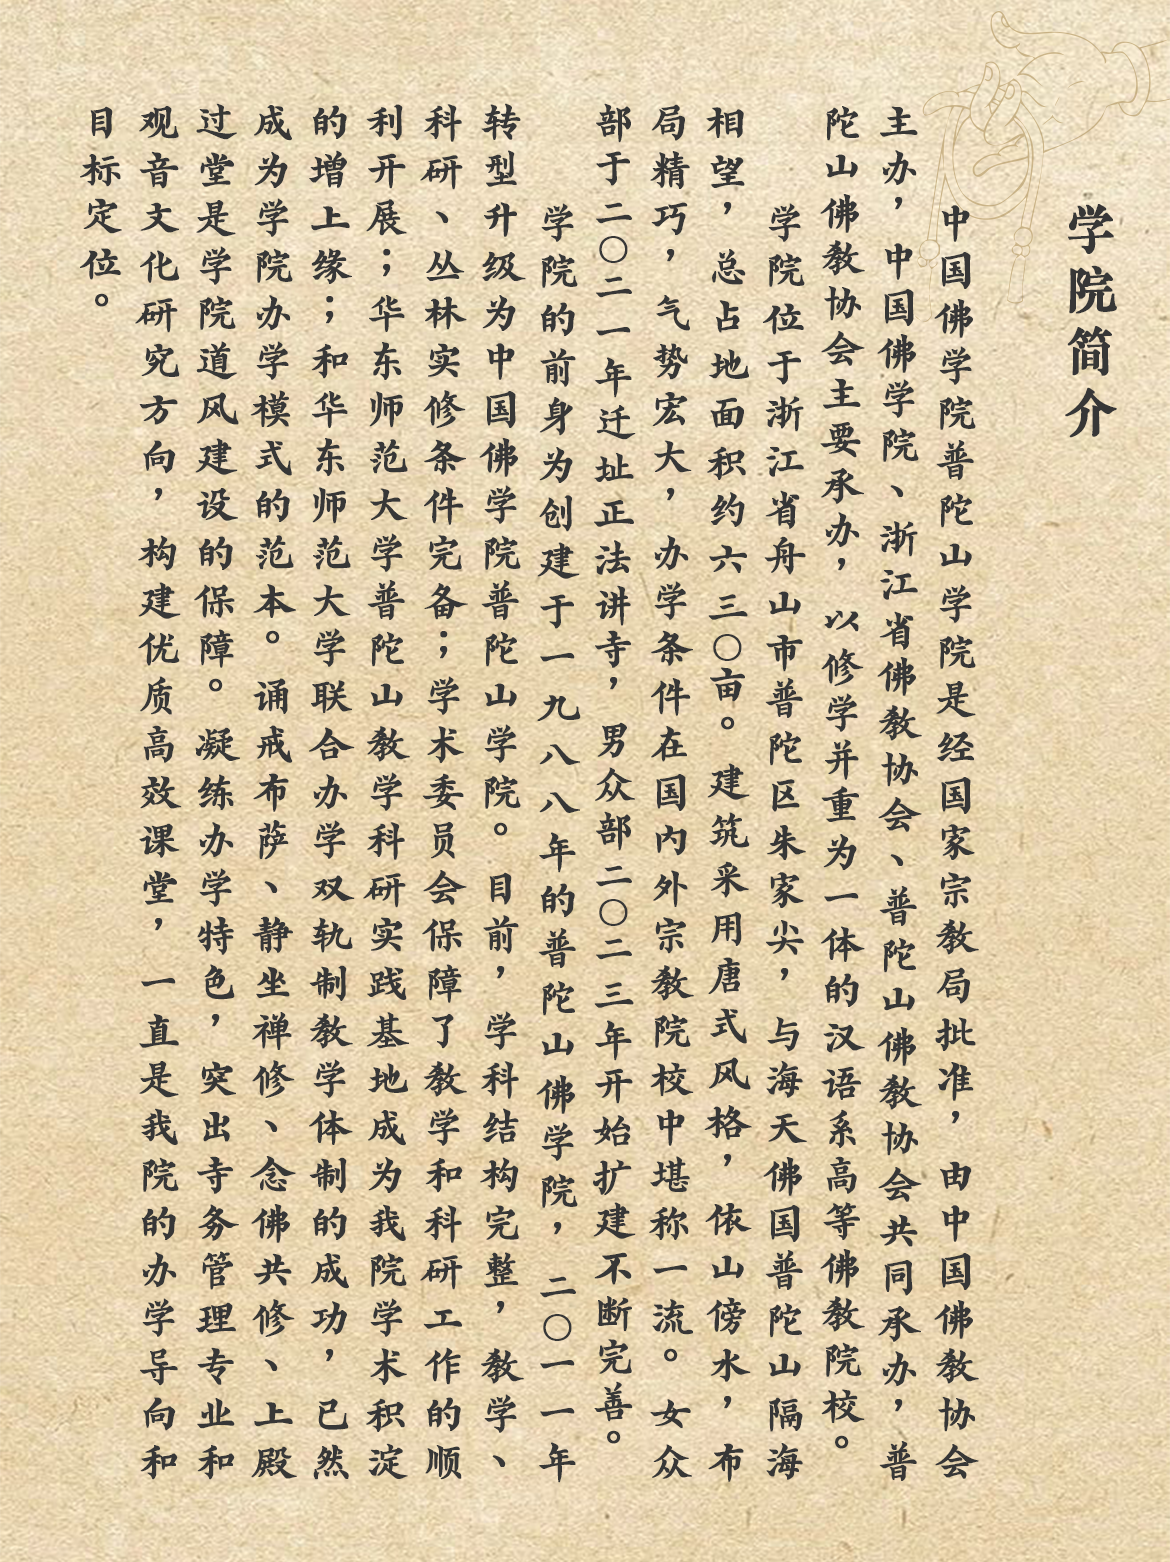 学院简介
中国佛学院普陀山学院是经国家宗教局批准，由中国佛教协会
主办，中国佛学院、浙江省佛教协会、普陀山佛教协会共同承办，普
陀山佛教协会主要承办，以修学并重为一体的汉语系高等佛教院校。
学院位于浙江省舟山市普陀区朱家尖，与海天佛国普陀山隔海
相望，总占地面积约六三〇亩。建筑采用唐式风格，依山傍水，布
局精巧，气势宏大，办学条件在国内外宗教院校中堪称一流。女众
部于二〇二一年迁址正法讲寺，男众部二〇二三年开始扩建不断完善。
学院的前身为创建于一九八八年的普陀山佛学院，二〇一一年
转型升级为中国佛学院普陀山学院。目前，学科结构完整，教学、
科研、丛林实修条件完备；学术委员会保障了教学和科研工作的顺
利开展；华东师范大学普陀山教学科研实践基地成为我院学术积淀
的增上缘；和华东师范大学联合办学双轨制教学体制的成功，已然
成为学院办学模式的范本。诵戒布萨、静坐禅修、念佛共修、上殿
过堂是学院道风建设的保障。凝练办学特色，突出寺务管理专业和
观音文化研究方向，构建优质高效课堂，一直是我院的办学导向和
目标定位。